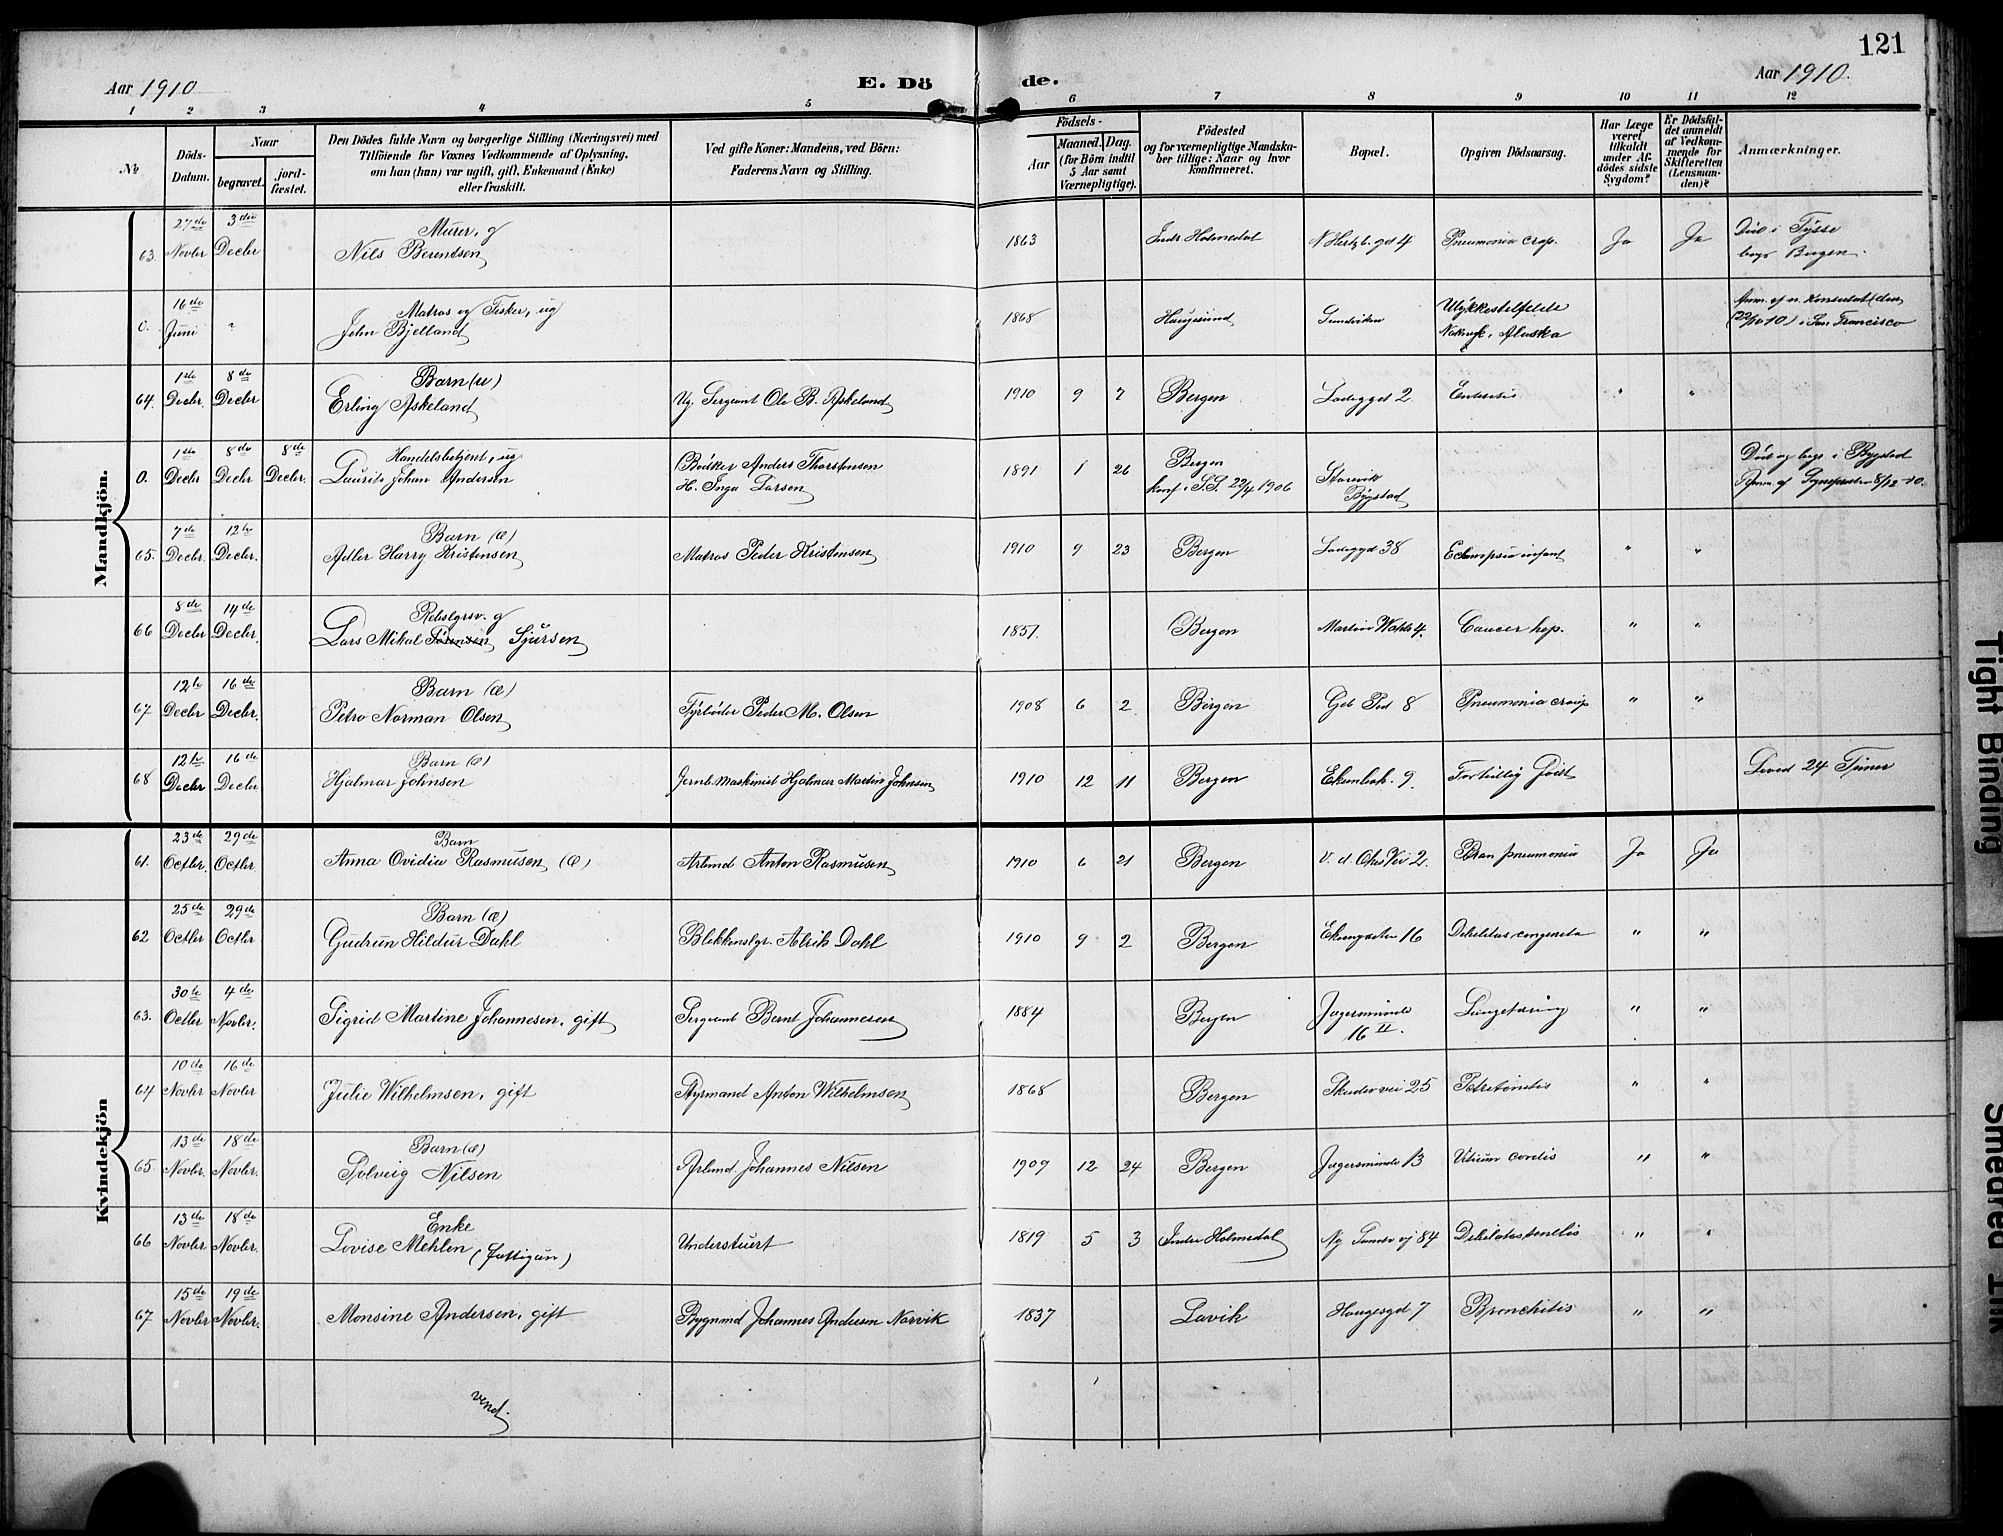 121
Aar 1910
E. Dö de.
Aar 1910.
1 2 3 4 5 6 7 8 9 10 11 12
No
Döds-Datum.
Naar
begravet.
jord-fæstet.
Den Dödes fulde Navn og borgerlige Stilling (Næringsvei) med
Tilföiende for Voxnes Vedkommende af Oplysning,
om han (hun) var ugift, gift, Enkemand (Enke)
eller fraskilt.
Ved gifte Koner: Mandens, ved Börn:
Faderens Navn og Stilling.
Födsels-
Aar
Maaned. Dag.
(for Börn indtil
5 Aar samt
Værnepligtige).
Födested
og for værnepligtige Mandska-
ber tillige: Naar og hvor
konfirmeret.
Bopæl.
Opgiven Dödsaarsag.
Har Læge
været
tilkaldt
under Af-
dödes sidste
Sygdom?
Er Dödsfal-
det anmeldt
af Vedkom-
mende for
Skifteretten
(Lensman-
den)?
Anmærkninger.
Mandkjön.
63. 27de Novbr 3die Decbr Murer, g Nils Berentsen 1863 Indr Holmedal gd 4 Pneumonia crop. Ja Ja Död i Tysse begr Bergen.
0. 16de Juni " Matros og Fisker, ug John Bjelland 1868 Haugesund Sandviken Ulykkestilfælde Alaska i San Francisco
64. 1ste Decbr. 8de Decbr Barn (u) Erling Askeland Ug. Sergeant Ole B. Askeland 1910 9 7 Bergen Ladeggd 2 Enteritis " "
0. 1ste Decbr 8de Decbr 8de Decbr. Handelsbetjent, ug Laurits Johan Andersen Bödker Anders Thorstensen H. Inga Larsen 1891 1 26 Bergen konf i S.S. 22/4 1906 Storevik Bygstad Död og begr i Bygstad Anm. af Sognepresten 8/12-10.
65. 7de Decbr. 12te Decbr. Barn (æ) Adler Harry Kristensen Matros Peder Kristensen 1910 9 23 Bergen Ladeggd 38 Eclampsia infant " "
66 8de Decbr 14de Decbr. Rebslgrsv. g Lars Mikal Sörensen Sjursen 1851. Bergen Martin Vahls 4. Cancer hep. " "
67 12te Decbr 16de Decbr. Barn (æ) Petro Norman Olsen Fyrböder Peder M. Olsen 1908 6 2 Bergen 8 Pneumonia croup " "
68 12te Decbr 16de Decbr Barn (æ) Hjalmar Johnsen Jernb. Maskinist Hjalmar Martin Johnsen 1910 12 11 Bergen Ekenbak. 9. Fortidlig födt Leved 24 Timer
Kvindekjön
61. 23de Octbr. 29de Octbr Barn Anna Ovidia Rasmusen (æ) Arbmd Anton Rasmusen 1910 6 21 Bergen 2. Bron pneumonia Ja Ja
62 25de Octbr 29de Octbr Barn (æ) Gudrun Hildur Dahl Blikkenslgr. Alrik Dahl 1910 9 2 Bergen Ekengaden 16 Debilitas congenita " "
63. 30te Octbr 4de Novbr. Sigrid Martine Johannesen, gift Sergeant Bernt Johannesen 1884 Bergen Jægersminde 16 II. Lungetæring " "
64 10de Novbr 16de Novbr Julie Wilhelmsen, gift Styrmand Anton Wilhelmsen 1868 Bergen Skuder vei 25 " "
65 13de Novbr. 18de Novbr. Barn (æ) Solveig Nilsen Arbmd Johannes Nilsen 1909 12 24 Bergen Jægersminde 13 Vitium cordis " "
66 13de Novbr 18de Novbr. Enke Lovise Mehlen (fattigun) Understuert 1819 5 3 Indre Holmedal 84 Debilitas senilis " "
67 15de Novbr 19de Novbr. Monsine Andersen, gift Bygmmd Johannes Andersen Norvik 1837 Lavik Haugesgd 7 Bronchitis " "
vend.
Tight Bindring
Smeared Ink